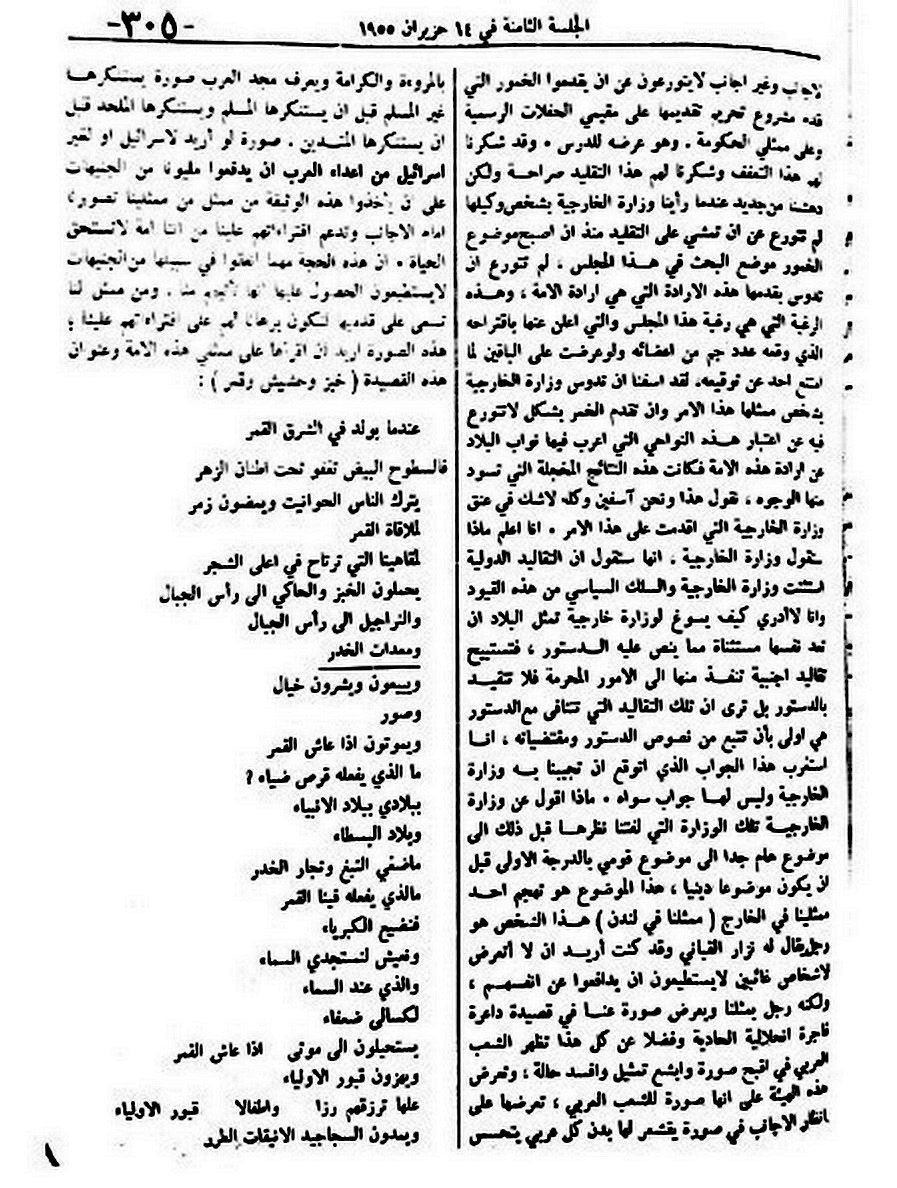 -٣٠٥-
الجلسة الثامنة في ١٤ حزيران ١٩٥٥
لاجانب وغير اجانب لايتورعون عن ان يقدموا الخمور التي
قدم مشروع تحريم تقديمها على مقيمي الحفلات الرسمية
وعلى ممثلي الحكومة . وهو عرضه للدرس . وقد شكرنا
لهم هذا التعفف وشكرنا لهم هذا التقليد صراحة ولكن
دهشنا من جديد عندما رأينا وزارة الخارجية بشخص وكيلها
لم تتورع عن ان تمشي على التقليد منذ ان اصبح موضوع
الخمور موضع البحث في هذا المجلس ، لم تتورع ان
تدوس بقدمها هذه الارادة التي هي ارادة الامة ، وهذه
الرغبة التي هي رغبة هذا المجلس والتي اعلن عنها باقتراحه
الذي وقعه عدد جم من اعضائه ولو عرضت على الباقين لما
امتنع احد عن توقيعه، لقد اسفنا ان تدوس وزارة الخارجية
بشخص ممثلها هذا الامر وان تقدم الخمر بشكل لاتتورع
فيه عن اعتبار هذه النواحي التي اعرب فيها نواب البلاد
عن ارادة هذه الامة فكانت هذه النتائج المخجلة التي تسود
منها الوجوه ، نقول هذا ونحن آسفين وكله لاشك في عنق
وزارة الخارجية التي اقدمت على هذا الامر . انا اعلم ماذا
ستقول وزارة الخارجية ، انها ستقول ان التقاليد الدولية
استثنت وزارة الخارجية والسلك السياسي من هذه القيود
وانا لاأدري كيف يسوغ لوزارة خارجية تمثل البلاد ان
تعد نفسها مستثناة مما ينص عليه الدستور ، فتستبيح
تقاليد اجنبية تنفذ منها الى الامور المحرمة فلا تتقيد
بالدستور بل ترى ان تلك التقاليد التي تتنافى مع الدستور
هي اولى بأن تتبع من نصوص الدستور ومقتضياته ، انا
استغرب هذا الجواب الذي اتوقع ان تجيبنا به وزارة
الخارجية وليس لها جواب سواه . ماذا اقول عن وزارة
الخارجية تلك الوزارة التي لفتنا نظرها قبل ذلك الى
موضوع هام جدا الى موضوع قومي بالدرجة الاولى قبل
ان يكون موضوعا دينيا ، هذا الموضوع هو تهجم احد
ممثلينا في الخارج ( ممثلنا في لندن ) هذا الشخص هو
رجل يقال له نزار القباني وقد كنت أريد ان لا أتعرض
لاشخاص غائبين لايستطيعون ان يدافعوا عن انفسهم ،
ولكنه رجل يمثلنا ويعرض صورة عنا في قصيدة داعرة
فاجرة انحلالية الحادية وفضلا عن كل هذا تظهر الشعب
العربي في اقبح صورة وابشع تمثيل وافسد حالة ، وتعرض
هذه الهيئة على انها صورة للشعب العربي ، تعرضها على
انظار الاجانب في صورة يقشعر لها بدن كل عربي يتحسس
بالمروءة والكرامة ويعرف مجد العرب صورة يستنكرها
غير المسلم قبل ان يستنكرها المسلم ويستنكرها الملحد قبل
ان يستنكرها المتدين . صورة لو أريد لاسرائيل او لغير
اسرائيل من اعداء العرب ان يدفعوا مليونا من الجنيهات
على ان يأخذوا هذه الوثيقة من ممثل من ممثلينا تصورنا
امام الاجانب وتدعم افتراءاتهم علينا من اننا امة لاتستحق
الحياة . ان هذه الحجة مهما انفقوا في سبيلها من الجنيهات
لايستطيعون الحصول عليها لكنها تأتيهم منا . ومن ممثل لنا
تسعى على قدميها لتكون برهانا لهم على افتراءاتهم علينا
هذه الصورة اريد ان اقرأها على ممثلي هذه الامة وعنوان
هذه القصيدة ( خبز وحشيش وقمر ) :
عندما يولد في الشرق القمر
فالسطوح البيض تغفو تحت اطنان الزهر
يترك الناس الحوانيت ويمضون زمر
لملاقاة القمر
لمقاهينا التي ترتاح في اعلى الشجر
يحملون الخبز والحاكي الى رأس الجبال
والنراجيل الى رأس الجبال
ومعدات الخدر
ويبيعون ويشرون خيال
وصور
ويموتون اذا عاش القمر
ما الذي يفعله قرص ضياء ؟
ببلادي ببلاد الانبياء
وبلاد البسطاء
ماضغي التبغ وتجار الخدر
مالذي يفعله فينا القمر
فنضيع الكبرياء
ونعيش لنستجدي السماء
والذي عند السماء
لكسالى ضعفاء
يستحيلون الى موتى اذا عاش القمر
ويهزون قبور الاولياء
علها ترزقهم رزا واطفالا قبور الاولياء
ويمدون السجاجيد الانيقات الطرر
١